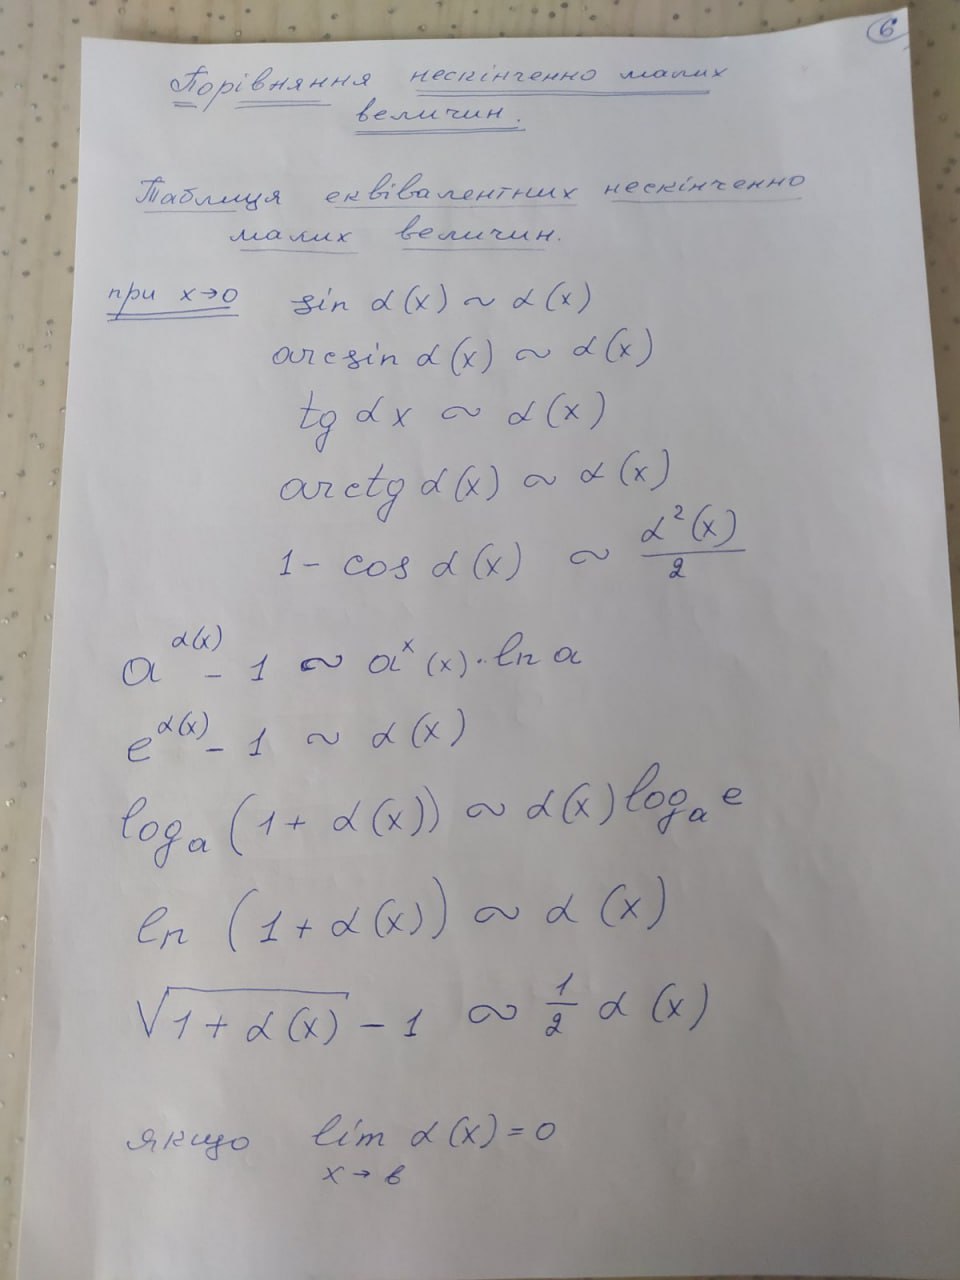 6
Порівняння нескінченно малих
величин.
Таблиця еквівалентних нескінченно
малих величин.
при x→0 sin α(x) ~ α(x)
arcsin α(x) ~ α(x)
tg αx ~ α(x)
arctg α(x) ~ α(x)
1 - cos α(x) ~ α²(x)/2
a^α(x) - 1 ~ aˣ(x)·ln a
e^α(x) - 1 ~ α(x)
logₐ(1 + α(x)) ~ α(x) logₐ e
ln (1 + α(x)) ~ α(x)
√(1 + α(x)) - 1 ~ 1/2 α(x)
якщо lim α(x) = 0
x→в